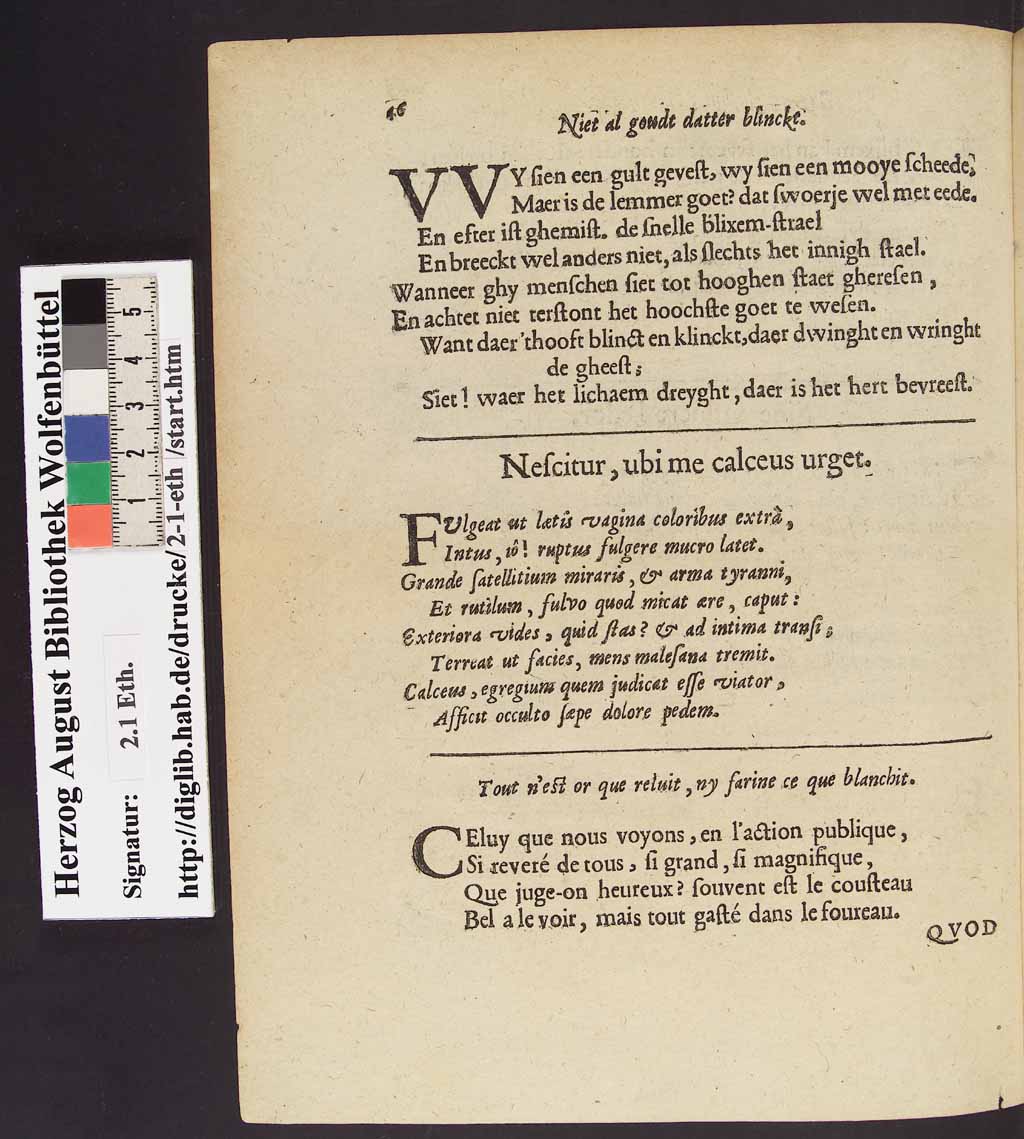 46
Niet al goudt datter blincke.
VVY sien een gult gevest, wy sien een mooye scheede;
Maer is de lemmer goet? dat swoerje wel met eede.
En efter ist ghemist. de snelle blixem-strael
En breeckt wel anders niet, als slechts het innigh stael.
Wanneer ghy menschen siet tot hooghen staet gheresen,
En achtet niet terstont het hoochste goet te wesen.
Want daer 'thooft blinct en klinckt, daer dwinght en wringht
de gheest;
Siet! waer het lichaem dreyght, daer is het hert bevreest.
Nescitur, ubi me calceus urget.
FUlgeat ut lætis vagina coloribus extrà,
Intus, iô! ruptus fulgere mucro latet.
Grande satellitium miraris, & arma tyranni,
Et rutilum, fulvo quod micat ære, caput:
Exteriora vides, quid stas? & ad intima transi;
Terreat ut facies, mens malesana tremit.
Calceus, egregium quem judicat esse viator,
Afficit occulto sæpe dolore pedem.
Tout n'est or que reluit, ny farine ce que blanchit.
CEluy que nous voyons, en l'action publique,
Si reveré de tous, si grand, si magnifique,
Que juge-on heureux? souvent est le cousteau
Bel a le voir, mais tout gasté dans le foureau.
QVOD
Herzog August Bibliothek Wolfenbüttel
Signatur: 2.1 Eth.
http://diglib.hab.de/drucke/2-1-eth/start.htm
1 2 3 4 5